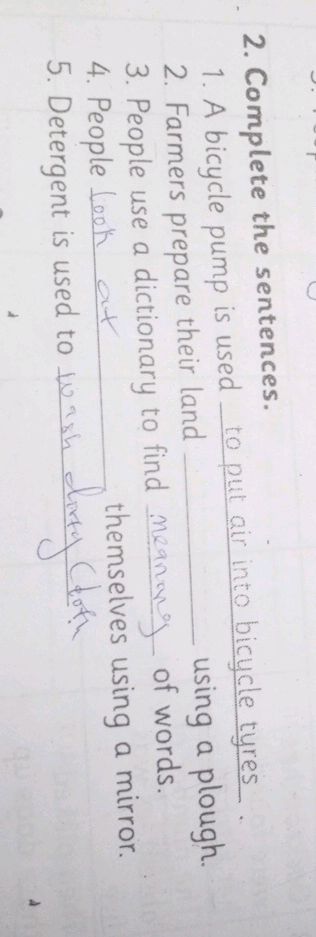 2. Complete the sentences.
1. A bicycle pump is used to put air into bicycle tyres.
2. Farmers prepare their land ____________ using a plough.
3. People use a dictionary to find meanings of words.
4. People look at ____________ themselves using a mirror.
5. Detergent is used to wash dirty cloth